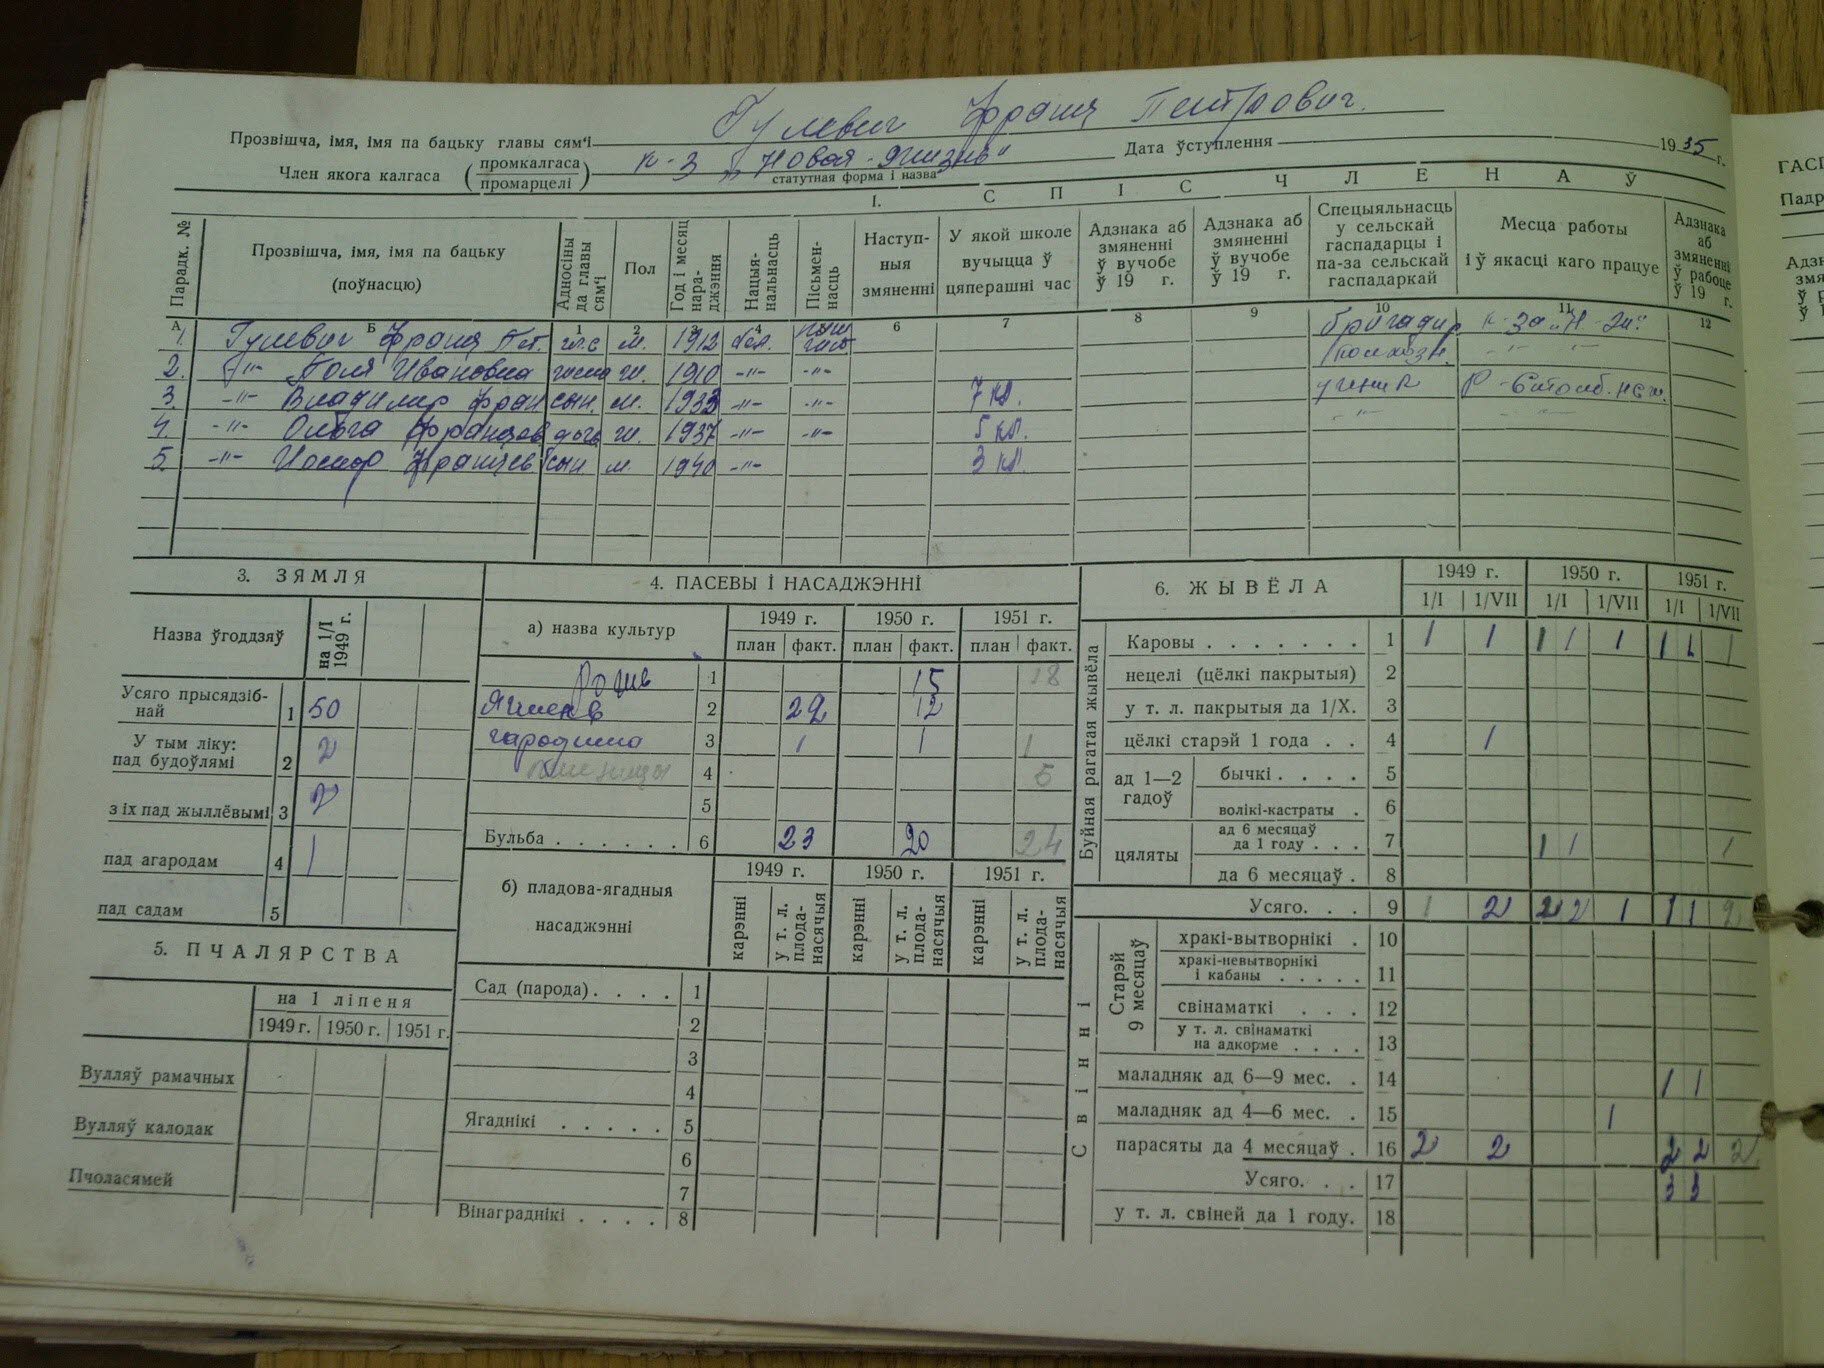 Прозвішча, імя, імя па бацьку главы сям'і Гулевич Франц Петрович.
Член якога калгаса (промкалгаса промарцелі) к-з „Новая жизнь" Дата ўступлення 1935 г.
статутная форма і назва
I. СПІС ЧЛЕНАЎ
Парадк. № | Прозвішча, імя, імя па бацьку (поўнасцю) | Адносіны да главы сям'і | Пол | Год і месяц нараджэння | Нацыянальнасць | Пісьменнасць | Наступныя змяненні | У якой школе вучыцца ў цяперашні час | Адзнака аб змяненні ў вучобе ў 19 г. | Адзнака аб змяненні ў вучобе ў 19 г. | Спецыяльнасць у сельскай гаспадарцы і па-за сельскай гаспадаркай | Месца работы і ў якасці каго працуе | Адзнака аб змяненні ў рабоце ў 19 г.
А | Б | 1 | 2 | 3 | 4 | 5 | 6 | 7 | 8 | 9 | 10 | 11 | 12
1. Гулевич Франц Пет. гл.с м. 1912 бел. бригадир к-з „Н-Ж"
2. -"- Поля Ивановна жена ж. 1910 -"- -"- -"- -"-
3. -"- Владимир Фран сын. м. 1933 -"- -"- 7 кл. ученик
4. -"- Ольга Францев дочь ж. 1937 -"- -"- 5 кл. -"- -"-
5. -"- Иосиф Францев сын м. 1940 -"- 3 кл.
3. ЗЯМЛЯ
Назва ўгоддзяў | на 1/I 1949 г.
Усяго прысядзібнай 1 50
У тым ліку: пад будоўлямі 2 2
з іх пад жыллёвымі 3 2
пад агародам 4 1
пад садам 5
5. ПЧАЛЯРСТВА
на 1 ліпеня
1949 г. | 1950 г. | 1951 г.
Вулляў рамачных
Вулляў калодак
Пчоласямей
4. ПАСЕВЫ І НАСАДЖЭННІ
а) назва культур | 1949 г. | 1950 г. | 1951 г.
план | факт. | план | факт. | план | факт.
Рожь 1 15 18
Ячмень 2 22 12
городина 3 1 1 1
пшеницы 4 6
5
Бульба 6 23 20 24
б) пладова-ягадныя насаджэнні | 1949 г. | 1950 г. | 1951 г.
карэнні | у т. л. плоданасячыя | карэнні | у т. л. плоданасячыя | карэнні | у т. л. плоданасячыя
Сад (парода) . . . . 1
2
3
4
Ягаднікі . . . . . 5
6
7
Вінаграднікі . . . . 8
6. ЖЫВЁЛА | 1949 г. | 1950 г. | 1951 г.
1/I | 1/VII | 1/I | 1/VII | 1/I | 1/VII
Буйная рагатая жывёла
Каровы . . . . . . . 1 1 1 1 1 1 1 1 1
нецелі (цёлкі пакрытыя) 2
у т. л. пакрытыя да 1/X. 3
цёлкі старэй 1 года . . 4 1
ад 1—2 гадоў бычкі . . . . 5
волікі-кастраты . 6
цяляты ад 6 месяцаў да 1 году . . . 7 1 1 1
да 6 месяцаў . 8
Усяго. . . 9 1 2 2 2 1 1 1 2
Свінні
Старэй 9 месяцаў
хракі-вытворнікі . 10
хракі-невытворнікі і кабаны . . . . . 11
свінаматкі . . . 12
у т. л. свінаматкі на адкорме . . . . 13
маладняк ад 6—9 мес. . 14 1 1
маладняк ад 4—6 мес. . 15 1
парасяты да 4 месяцаў . 16 2 2 2 2 2
Усяго. . . 17 3 3
у т. л. свіней да 1 году. 18